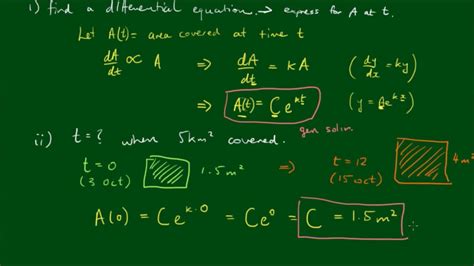 i) find a differential equation. → express for A at t.
Let A(t) = area covered at time t
dA/dt ∝ A ⇒ dA/dt = kA (dy/dx = ky)
⇒ A(t) = Ce^{kt} (y = Ae^{kx})
gen soln.
ii) t = ? when 5km² covered.
t = 0 1.5m² ⇒ t = 12 4m²
(3 oct) (15 oct)
A(0) = Ce^{k·0} = Ce⁰ = C = 1.5m²